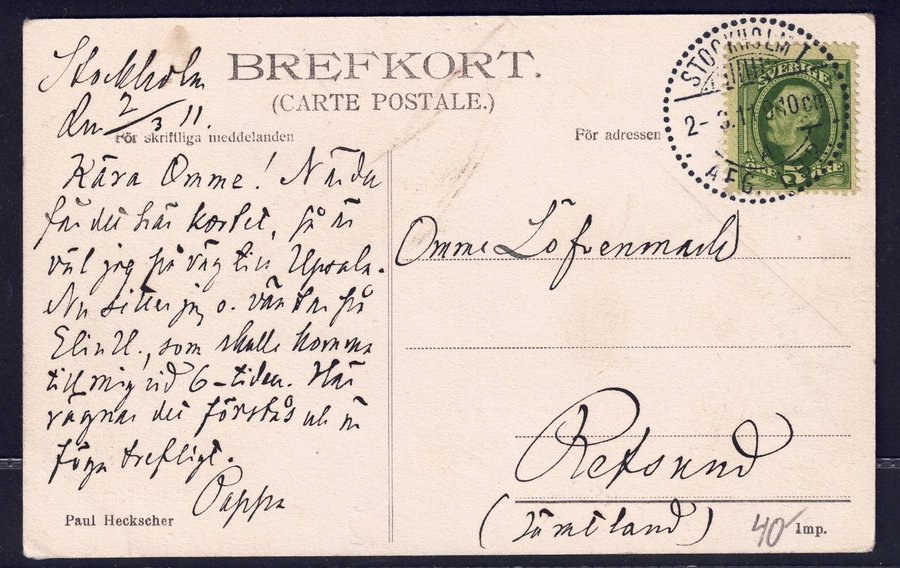 BREFKORT.
(CARTE POSTALE.)
Stockholm
den 2/3 11.
För skriftliga meddelanden
Kära Omme! När du
får det här kortet, så är
väl jag på väg till Upsala.
Nu sitter jag o. väntar på
Elin U., som skulle komma
till mig vid 6-tiden. Här
rägnar det förstås och är
föga trefligt.
Pappa
Paul Heckscher
För adressen
STOCKHOLM 1
2-3.11
AFG.
SVERIGE
5
ÖRE
Omme Löfvenmark
Refsund
(Jämtland)
40
Imp.